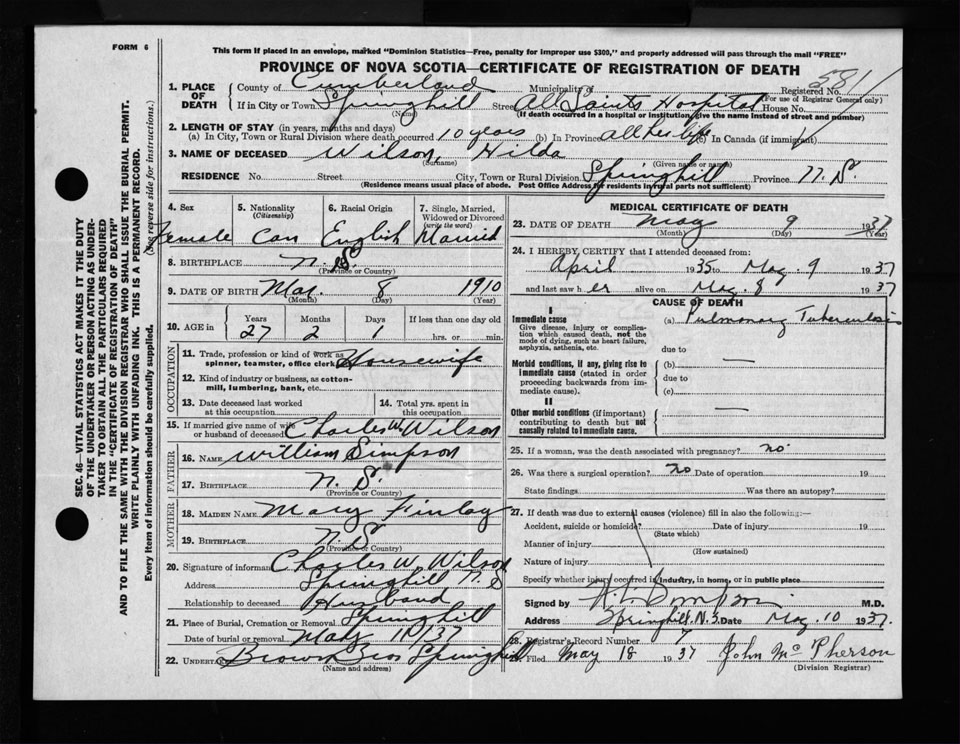 FORM 6
This form if placed in an envelope, marked "Dominion Statistics—Free, penalty for improper use $300," and properly addressed will pass through the mail "FREE"
PROVINCE OF NOVA SCOTIA—CERTIFICATE OF REGISTRATION OF DEATH
5811
SEC. 46—VITAL STATISTICS ACT MAKES IT THE DUTY
OF THE UNDERTAKER OR PERSON ACTING AS UNDER-
TAKER TO OBTAIN ALL THE PARTICULARS REQUIRED
IN THE "CERTIFICATE OF REGISTRATION OF DEATH"
AND TO FILE THE SAME WITH THE DIVISION REGISTRAR WHO SHALL ISSUE THE BURIAL PERMIT.
WRITE PLAINLY WITH UNFADING INK. THIS IS A PERMANENT RECORD.
Every item of information should be carefully supplied. (See reverse side for instructions.)
1. PLACE OF DEATH
County of Cumberland Municipality of Registered No.
(For use of Registrar General only)
If in City or Town Springhill Street All Saints Hospital House No.
(Name) (If death occurred in a hospital or institution, give the name instead of street and number)
2. LENGTH OF STAY (in years, months and days)
(a) In City, Town or Rural Division where death occurred 10 years (b) In Province all her life (c) In Canada (if immigrant)
3. NAME OF DECEASED Wilson, Hilda
(Surname) (Given name or names)
RESIDENCE No. Street City, Town or Rural Division Springhill Province N. S.
(Residence means usual place of abode. Post Office Address for residents in rural parts not sufficient)
4. Sex 5. Nationality (Citizenship) 6. Racial Origin 7. Single, Married, Widowed or Divorced (write the word)
Female Can English Married
8. BIRTHPLACE N. S.
(Province or Country)
9. DATE OF BIRTH Mar. 8 1910
(Month) (Day) (Year)
10. AGE in Years Months Days If less than one day old
27 2 1 hrs. or min.
OCCUPATION
11. Trade, profession or kind of work as spinner, teamster, office clerk Housewife
12. Kind of industry or business, as cotton-mill, lumbering, bank, etc.
13. Date deceased last worked at this occupation 14. Total yrs. spent in this occupation
15. If married give name of wife or husband of deceased Charles W. Wilson
FATHER
16. NAME William Simpson
17. BIRTHPLACE N. S.
(Province or Country)
MOTHER
18. MAIDEN NAME Mary Finlay
19. BIRTHPLACE N. S.
(Province or Country)
20. Signature of informant Charles W. Wilson
Address Springhill N. S
Relationship to deceased Husband
21. Place of Burial, Cremation or Removal Springhill
Date of burial or removal May 11/37
22. UNDERTAKER Brown Bros Springhill
(Name and address)
MEDICAL CERTIFICATE OF DEATH
23. DATE OF DEATH May 9 1937
(Month) (Day) (Year)
24. I HEREBY CERTIFY that I attended deceased from:
April 1935 to May. 9 1937
and last saw her alive on May. 8 1937
CAUSE OF DEATH
I
Immediate cause (a) Pulmonary Tuberculosis
Give disease, injury or complication which caused death, not the mode of dying, such as heart failure, asphyxia, asthenia, etc.
due to
Morbid conditions, if any, giving rise to immediate cause (stated in order proceeding backwards from immediate cause).
(b) —
due to
(c)
II
Other morbid conditions (if important) contributing to death but not causally related to immediate cause. —
25. If a woman, was the death associated with pregnancy? no
26. Was there a surgical operation? no Date of operation 19
State findings Was there an autopsy?
27. If death was due to external causes (violence) fill in also the following:—
Accident, suicide or homicide? Date of injury 19
(State which)
Manner of injury
(How sustained)
Nature of injury
Specify whether injury occurred in industry, in home, or in public place
Signed by Simpson M.D.
Address Springhill, N. S. Date May. 10 1937.
28. Registrar's Record Number 7
29. Filed May 18 1937 John McPherson
(Division Registrar)